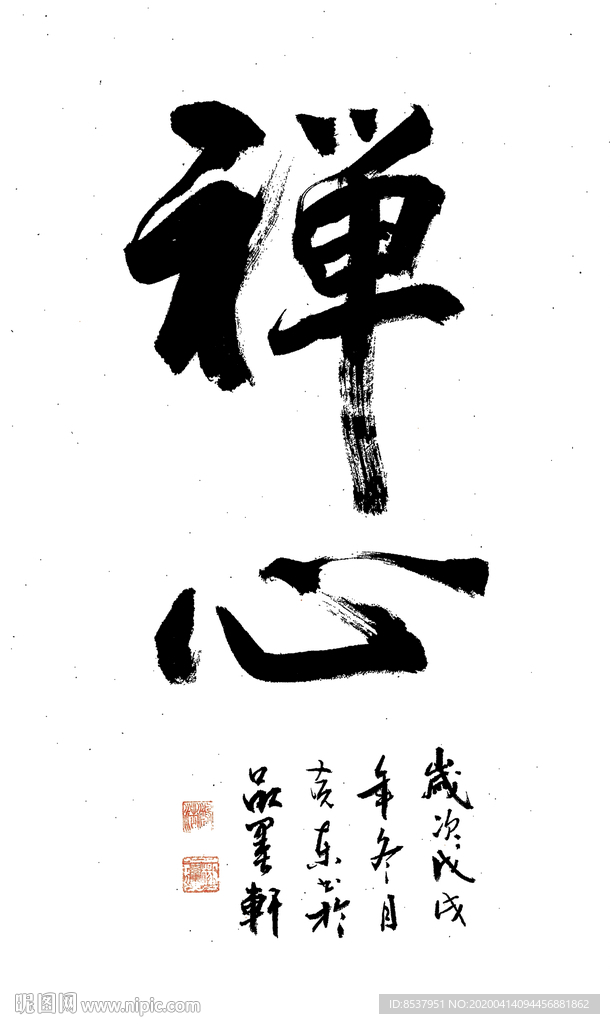 禅心
歲次戊戌
年冬月
亮东书於
品墨軒
昵图网 www.nipic.com
ID:8537951 NO:20200414094456881862